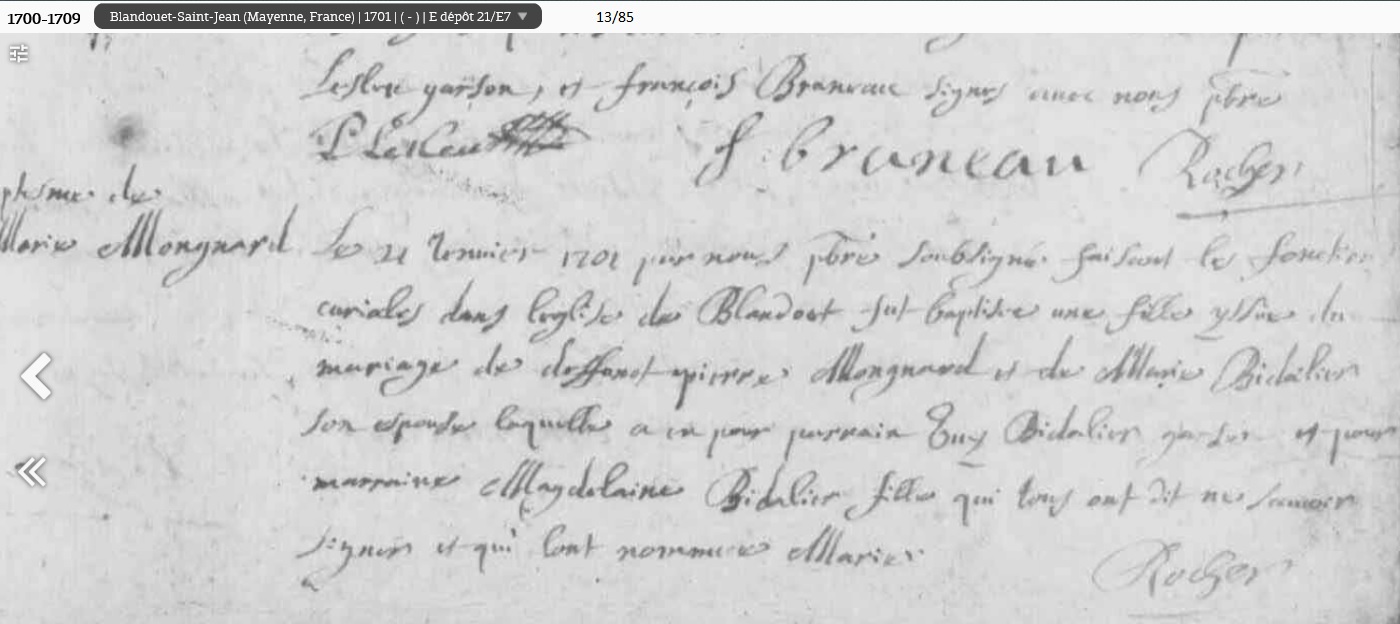 1700-1709 Blandouet-Saint-Jean (Mayenne, France) | 1701 | ( - ) | E dépôt 21/E7 ▼ 13/85
garson, et françois Braneau signés avec nous pbre
f. braneau Rocher
ptesme de
Marie Mongnard
Le 21 Jenvier 1701 par nous pbre soubsigné faisant les fonction
curiales dans leglise de Blandoet fut baptisée une fille yssue du
mariage de deffunct pierre Mongnard et de Marie Bidalier
son espouse laquelle a eu pour parrain Guy Bidalier garson et pour
marraine Magdelaine Bidalier fille qui tous ont dit ne scavoir
signer et qui lont nommée Marie
Rocher